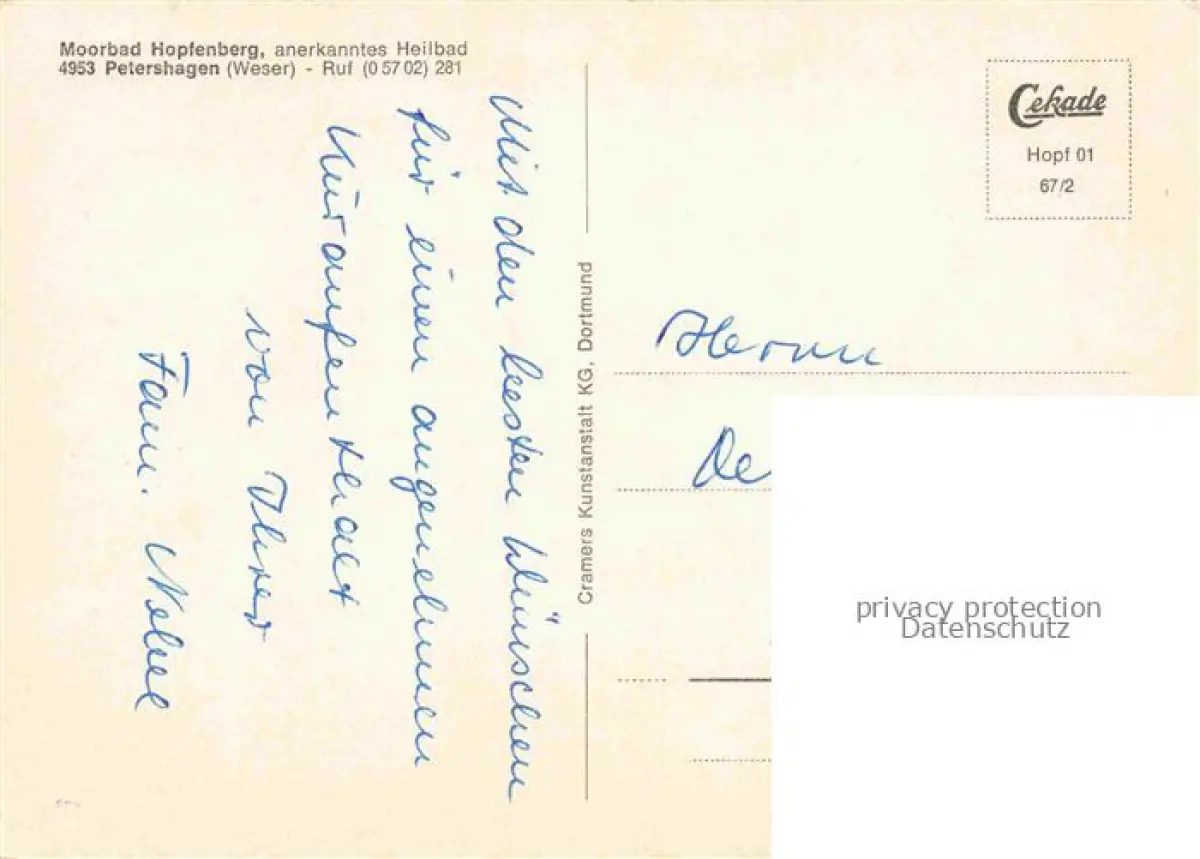 Moorbad Hopfenberg, anerkanntes Heilbad
4953 Petershagen (Weser) - Ruf (0 57 02) 281
Mit den besten Wünschen
für einen angenehmen
Kuraufenthalt
von Ihrer
Fam. Nebel
Cramers Kunstanstalt KG, Dortmund
Cekade
Hopf 01
67/2
Herrn
privacy protection
Datenschutz